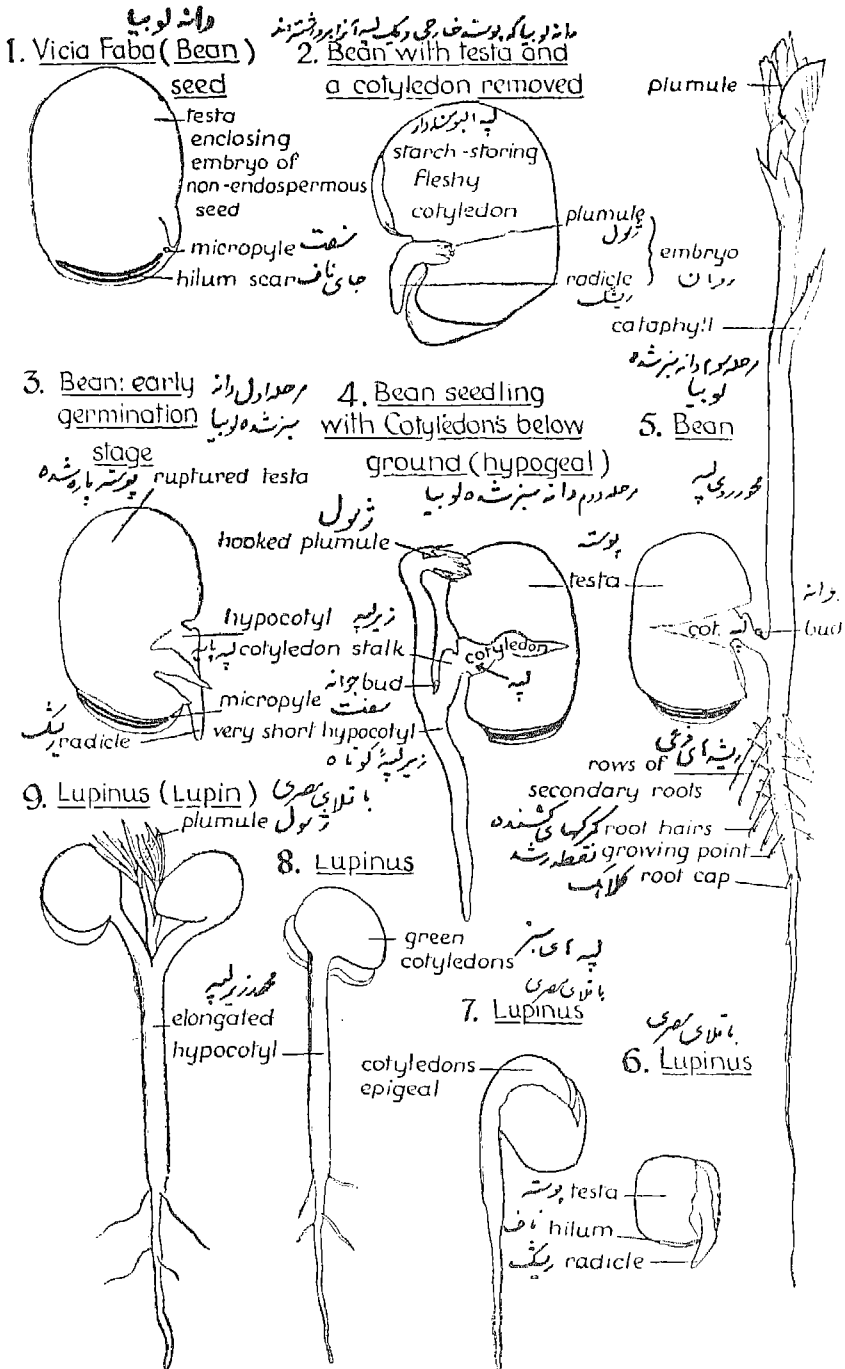 دانه لوبیا
1. Vicia Faba (Bean)
seed
testa
enclosing
embryo of
non-endospermous
seed
micropyle سفت
hilum scar جای ناف
دانه لوبیا که پوسته خارجی و یک لپه آنرا برداشته‌اند
2. Bean with testa and
a cotyledon removed
لپه
starch-storing
fleshy
cotyledon
plumule
ژمول
embryo
radicle
plumule
cataphyll
3. Bean: early
germination
stage
مرحله اول دانه
سبز شده لوبیا
پوسته پاره شده ruptured testa
hypocotyl زیر لپه
cotyledon stalk
bud جوانه
micropyle سفت
radicle
very short hypocotyl
زیر لپهٔ کوتاه
4. Bean seedling
with Cotyledons below
ground (hypogeal)
مرحله دوم دانه سبز شده لوبیا
ژمول
hooked plumule
پوسته
testa
cotyledon
لپه
مرحله سوم دانه سبز شده
لوبیا
5. Bean
محور روی لپه
cot. لپه
bud
ریشه‌های فرعی
rows of
secondary roots
root hairs
نقطه رشد growing point
کلاهک root cap
9. Lupinus (Lupin)
باقلای مصری
plumule ژمول
محور زیر لپه
elongated
hypocotyl
8. Lupinus
green
cotyledons
لپه های سبز
باقلای مصری
7. Lupinus
cotyledons
epigeal
باقلای مصری
6. Lupinus
پوسته testa
ناف hilum
radicle